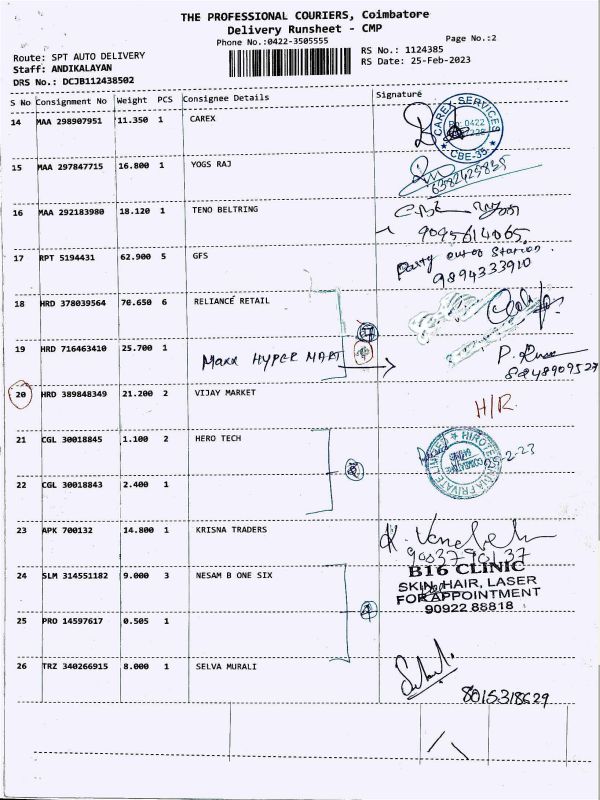 THE PROFESSIONAL COURIERS, Coimbatore
Delivery Runsheet - CMP
Phone No.:0422-3505555
Page No.:2
Route: SPT AUTO DELIVERY
RS No.: 1124385
Staff: ANDIKALAYAN
RS Date: 25-Feb-2023
DRS No.: DCJB112438502
S No Consignment No Weight PCS Consignee Details Signature
14 MAA 298907951 11.350 1 CAREX
CAREX-SERVICES
CBE-35
15 MAA 297847715 16.800 1 YOGS RAJ
6382425835
16 MAA 292183980 18.120 1 TENO BELTRING
9095614065
17 RPT 5194431 62.900 5 GFS
Party out of Station.
9894333910
18 HRD 378039564 70.650 6 RELIANCE RETAIL
19 HRD 716463410 25.700 1
Maxx HYPER MART
20 HRD 389848349 21.200 2 VIJAY MARKET
H/R
21 CGL 30018845 1.100 2 HERO TECH
22 CGL 30018843 2.400 1
23 APK 700132 14.800 1 KRISNA TRADERS
9037790137
24 SLM 314551182 9.000 3 NESAM B ONE SIX
B16 CLINIC
SKIN, HAIR, LASER
FOR APPOINTMENT
90922 88818
25 PRO 14597617 0.505 1
26 TRZ 340266915 8.000 1 SELVA MURALI
8015318629